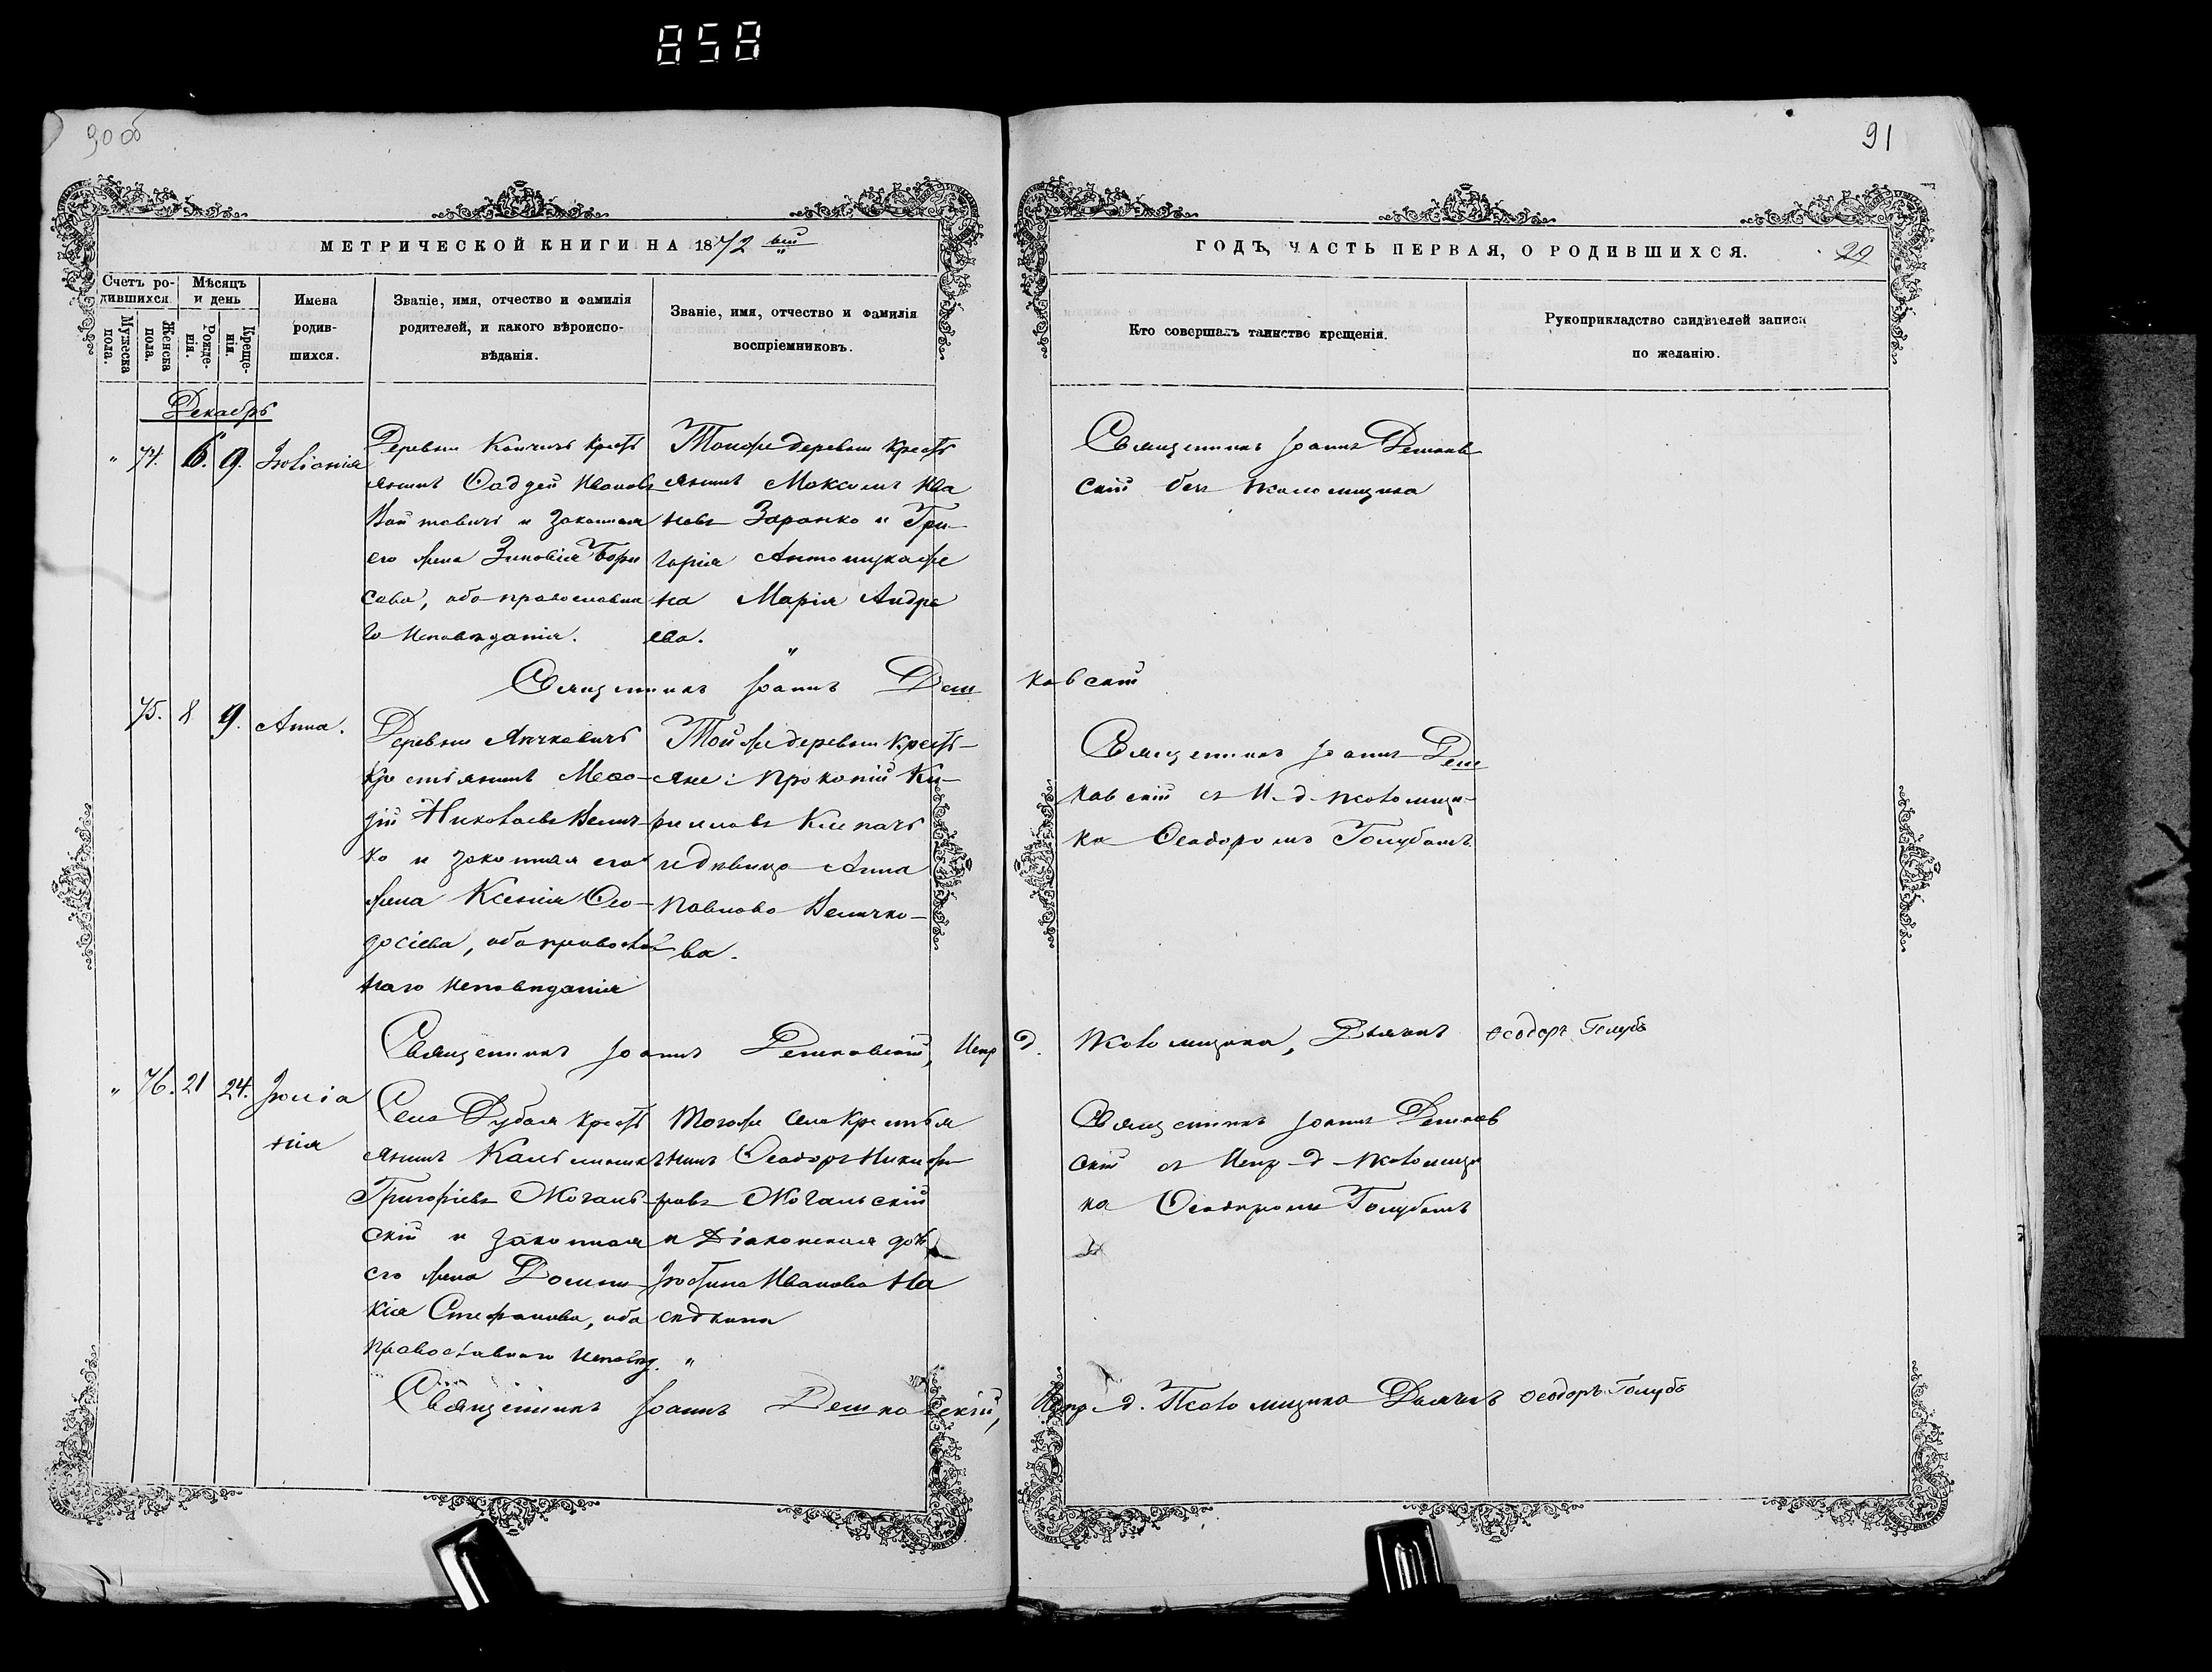 858
90 об
91
МЕТРИЧЕСКОЙ КНИГИ НА 1872 ый
ГОДЪ, ЧАСТЬ ПЕРВАЯ, О РОДИВШИХСЯ.
29
Счетъ ро-
дившихся
Мужеска
пола.
Женска
пола.
Мѣсяцъ
и день
Рожде-
нія.
Креще-
нія.
Имена
родив-
шихся.
Званіе, имя, отчество и фамилія
родителей, и какого вѣроиспо-
вѣданія.
Званіе, имя, отчество и фамилія
воспріемниковъ.
Кто совершалъ таинство крещенія.
Рукоприкладство свидѣтелей записи
по желанію.
Декабрь
" 74. 6. 9.
Іуліанія
Деревни кресть
янинъ Фаддей Ивановъ
Войтовичъ и законная
его жена Зиновія Бори
сова, оба православна
го исповѣданія.
Тойже деревни кресть
янинъ Максимъ Ива
новъ Заранко и Гри
горія жe
на Марія Андре
ева.
"
Священникъ Іоаннъ Дешков
скій безъ псаломщика
Священникъ Іоаннъ Деш
ковскій
75. 8 9.
Анна.
Деревни
крестьянинъ Меѳо-
дій Николаевъ Велич-
ко и законная его
жена Ксенія Ѳео-
досіева, оба православ
наго исповѣданія
Той же деревни кресть-
яне: Прокопій Ки-
рилловъ
и дѣвица Анна
Павлова Величко-
ва.
Священникъ Іоаннъ Деш
ковскій съ И. д. псаломщи-
ка Ѳеодоромъ Голубомъ
Священникъ Іоаннъ Дешковскій, Испр д. псаломщика, Дьячекъ Ѳеодоръ Голубъ
" 76. 21 24.
Іуліа
нія
Села Дубоя кресть
янинъ
Григорьевъ Можаль-
скій и законная
его жена Домни-
кія Стефанова, оба
православнаго исповѣд.
Тогоже села крестья
нинъ Ѳеодоръ Никифо
ровъ Можальскій
и Діаконская дочь
Іустина Иванова На
сѣдкина
"
Священникъ Іоаннъ Дешков
скій съ Испр д псаломщи
ка Ѳеодоромъ Голубомъ
Священникъ Іоаннъ Дешковскій, Испр. д. Псаломщика Дьячекъ Ѳеодоръ Голубъ